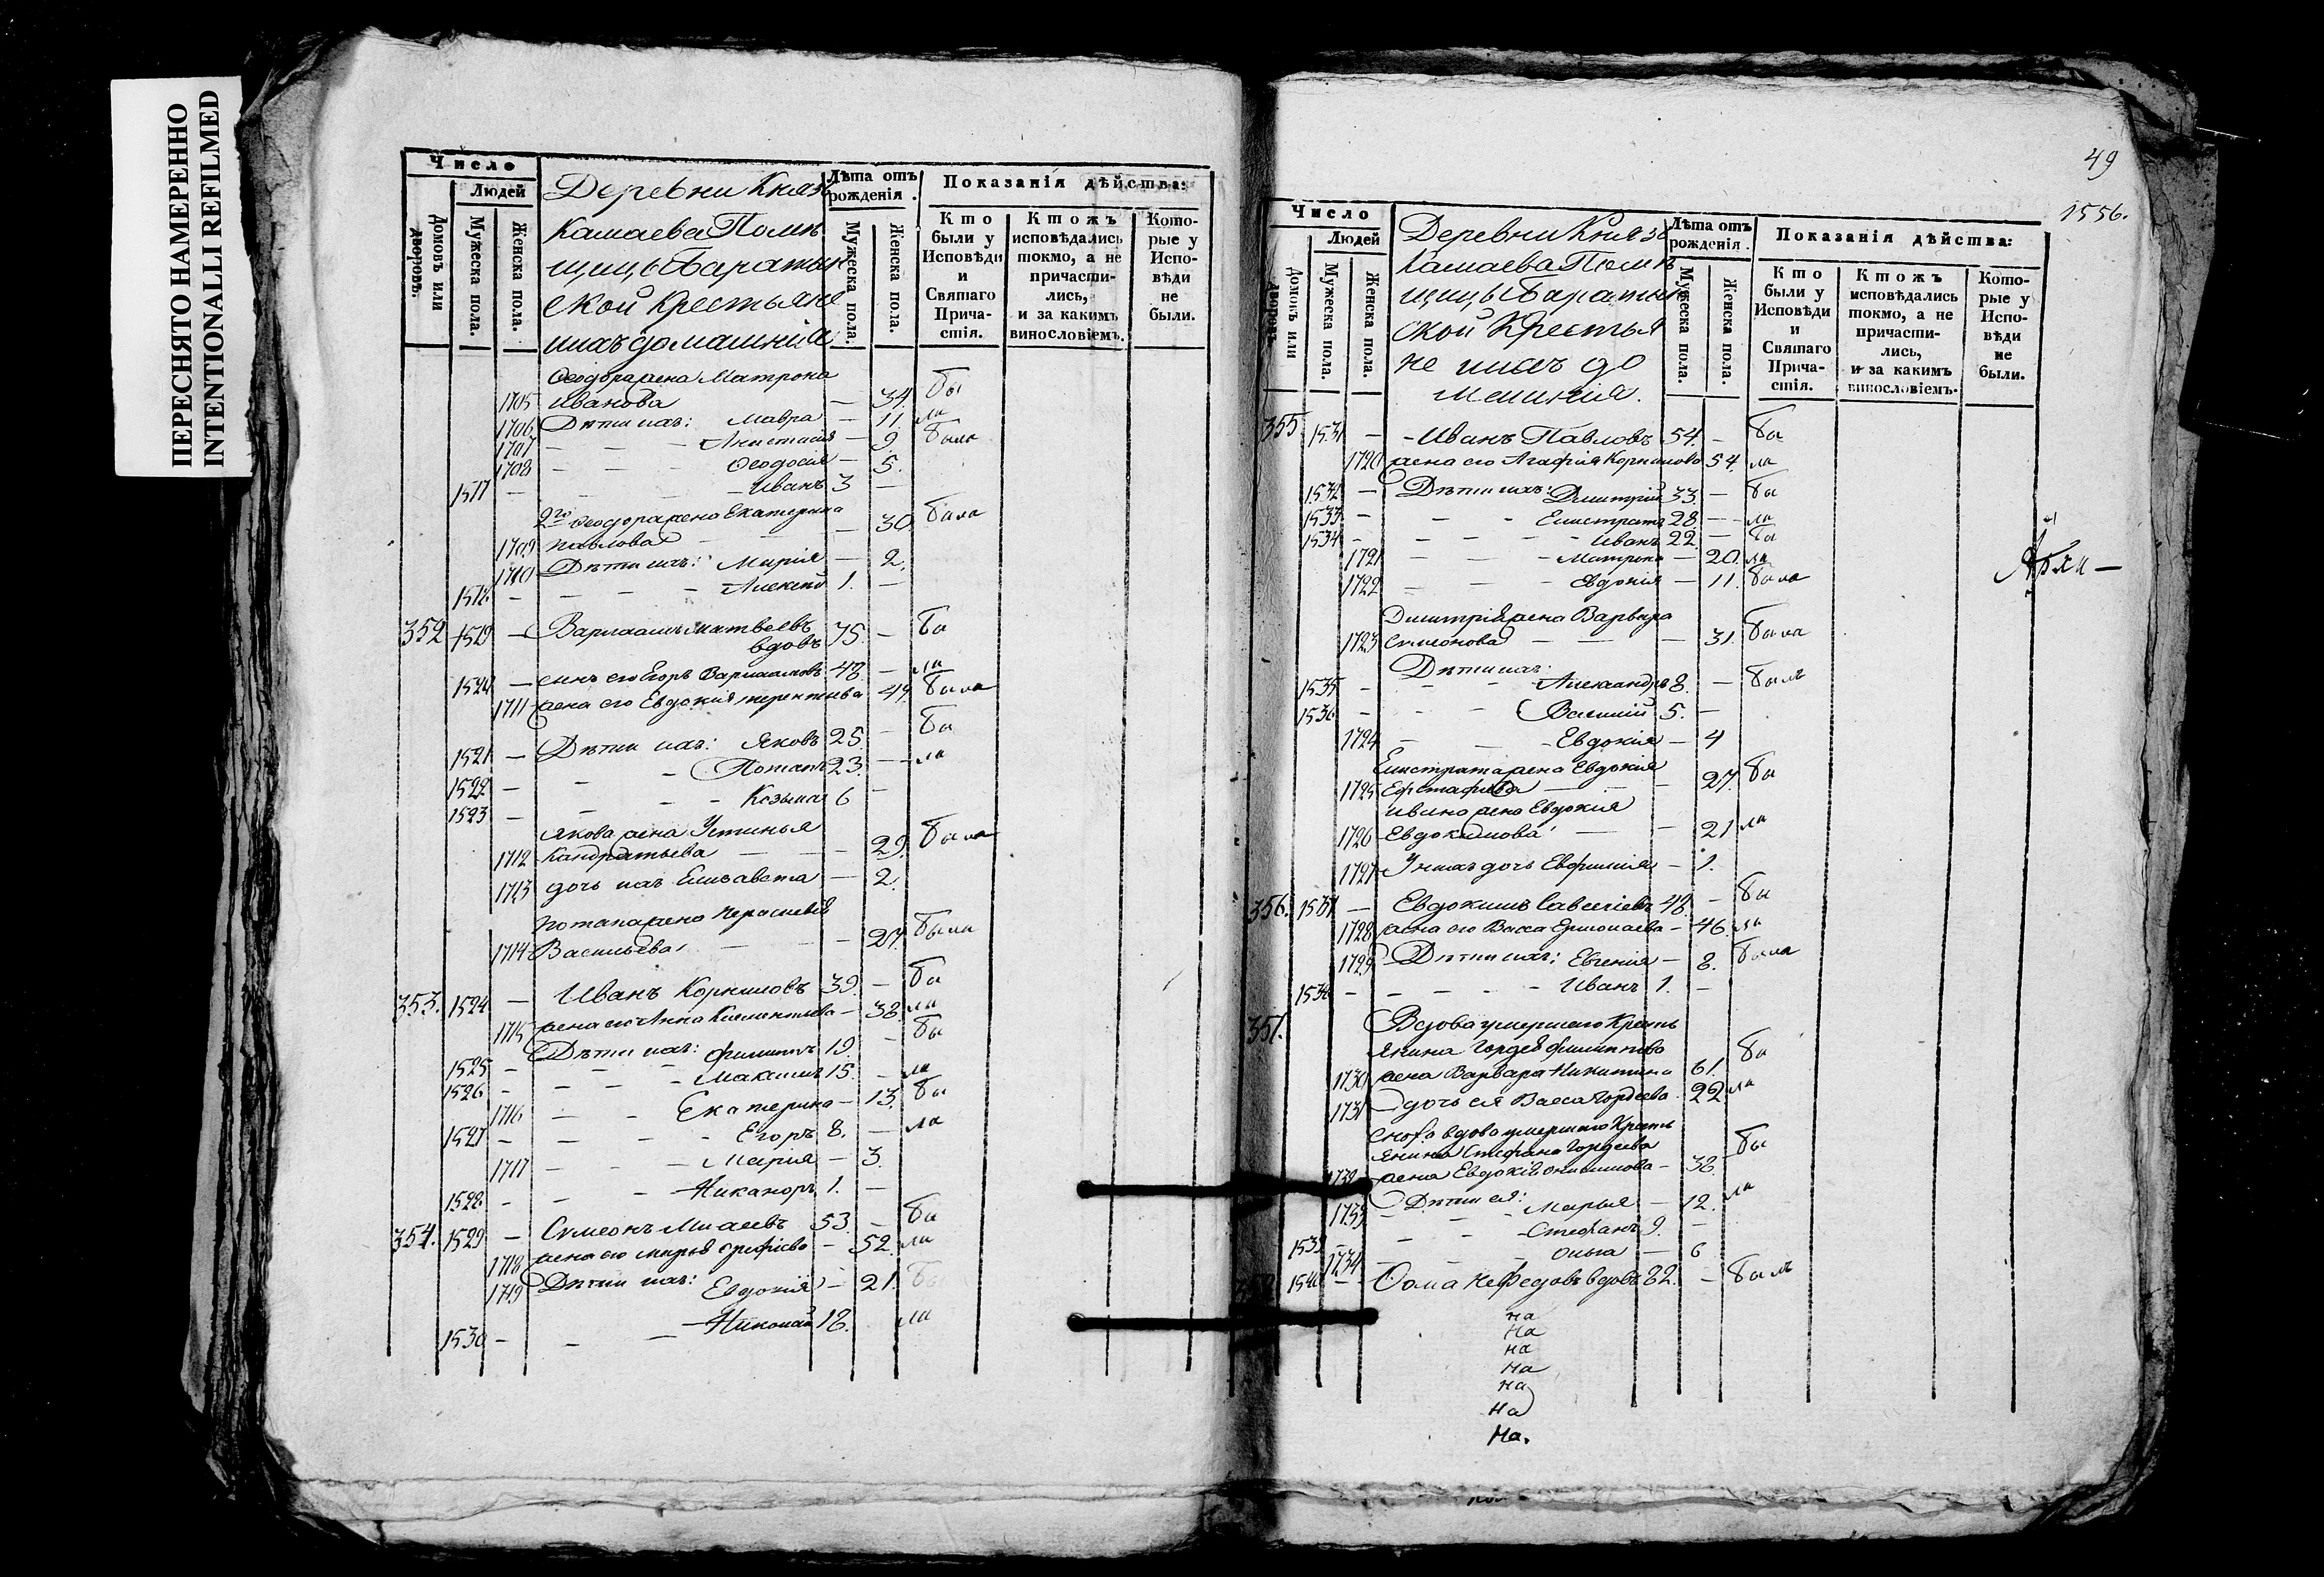 ПЕРЕСНЯТО НАМЕРЕННО
INTENTIONALLI REFILMED
Число
Людей
Домовъ или дворовъ.
Мужеска пола.
Женска пола.
Деревни Князь
Камаева Помѣ
щицы Баратын
ской крестьяне
ихъ домашнiя
Лѣта отъ рожденiя.
Мужеска пола.
Женска пола.
Показанiя дѣйства:
Кто были у Исповѣди и Святаго Прича-стiя.
Ктожъ исповѣдались токмо, а не причасти-лись, и за какимъ винословiемъ.
Кото-рые у Испо-вѣди не были.
Ѳеодора жена Матрона
1705 Иванова — 34. бы
1706 Дѣти ихъ: Мавра — 11. ла
1707 — — Анастасiя — 9 была
1708 — — — Ѳеодосiя — 5.
1517 — — — Иванъ 3 —
2го Ѳеодора жена Екатерина
1709 Павлова — 30 была
1710 Дѣти ихъ: Марiя — 2.
1518 — — — — Алексѣй 1. —
352 1519 — Варлаамъ Матвѣевъ
вдовъ 75. — бы
1520 — сынъ его Егоръ Варлаамовъ 48 — ла
1711 жена его Евдокiя Терентьева 49. была
1521 — Дѣти ихъ: Яковъ 25 — бы
1522 — — — Потапъ 23. — ла
1523 — — — — Козьма 6 —
Якова жена Устинья
1712 Кандратьева — — 29. была
1713 дочь ихъ Елисавета — 2.
Потапа жена Параскевiя
1714 Васильева — — 27. была
353. 1524 — Иванъ Корниловъ 39. — бы
1715 жена его Анна Климентьева — 38. ла
1525 — Дѣти ихъ: Филиппъ 19. — бы
1526 — — — — Максимъ 15. — ла
1716 — — Екатерина — 13. бы
1527 — — — — Егоръ 8. — ла
1717 — — — Марiя — 3.
1528 — — — Никаноръ 1. —
354. 1529 — Сѵмеонъ Минаевъ 53. — бы
1718 жена его Марья — 52. ла
1719 Дѣти ихъ: Евдокiя — 21. бы
1530 — — — Николай 18. ла
49
1556.
Число
Людей
Домовъ или дворовъ.
Мужеска пола.
Женска пола.
Деревни Князь
Камаева Помѣ
щицы Баратын
ской Крестья
не ихъ до
машнiя.
Лѣта отъ рожденiя.
Мужеска пола.
Женска пола.
Показанiя дѣйства:
Кто были у Исповѣди и Святаго Прича-стiя.
Ктожъ исповѣдались токмо, а не причасти-лись, и за какимъ винословiемъ.
Кото-рые у Испо-вѣди не были.
355 1531 — Иванъ Павловъ 54. — бы
1720 жена его Агафiя Корнилова 54. ла
1532 — Дѣти ихъ: Димитрiй 33 — бы
1533 — — — Елистратъ 28 — ла
1534 — — — — Иванъ 22. — бы
1721 — — — Матрона — 20. ла
1722 — — — Евдокiя — 11. была
Димитрiя жена Варвара
1723 Сѵмеонова — — 31. была
Дѣти ихъ:
1535 — — — Александръ 8. — былъ
1536 — — — Василiй 5. —
1724 — — — Евдокiя — 4
Елистрата жена Евдокiя
1725 Евстафiева — — 27. бы
Ивана жена Евдокiя
1726 Евдокимова — — 21 ла
1727 У нихъ дочь Евфимiя — 1.
356. 1537 — Евдокимъ Савельевъ 48. — бы
1728 жена его Васса Ермолаева — 46. ла
1729 Дѣти ихъ: Евгенiя — 8. была
1538 — — — — Иванъ 1. —
357. Вдова умершаго Кресть
янина Гордея Филиппова
1730 жена Варвара Никитина 61. бы
1731 дочь ея Васса Гордѣева 22 ла
Сноха вдова умершаго Кресть
янина Стефана Гордѣева
1732 жена Евдокiя Онисимова — 38. бы
1733 — Дѣти ея: Марья — 12. ла
1539 — — — Стефанъ 9. —
1734 — — Ольга — 6
1540 — Ѳома Нефедовъ вдовъ 82. — былъ
на
на
на
на
на
на
на.